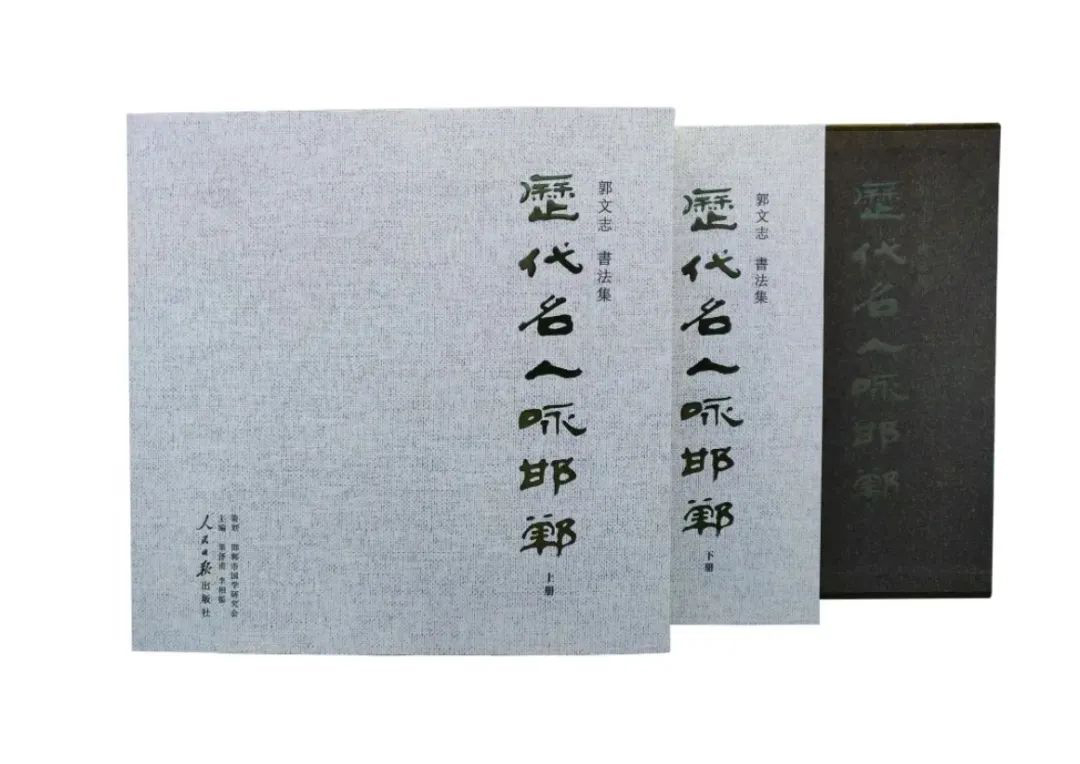 歷代名人咏邯鄲
上册
郭文志 書法集
策划 邯鄲市国学研究会
主编
人民日报出版社
歷代名人咏邯鄲
下册
郭文志 書法集
歷代名人咏邯鄲